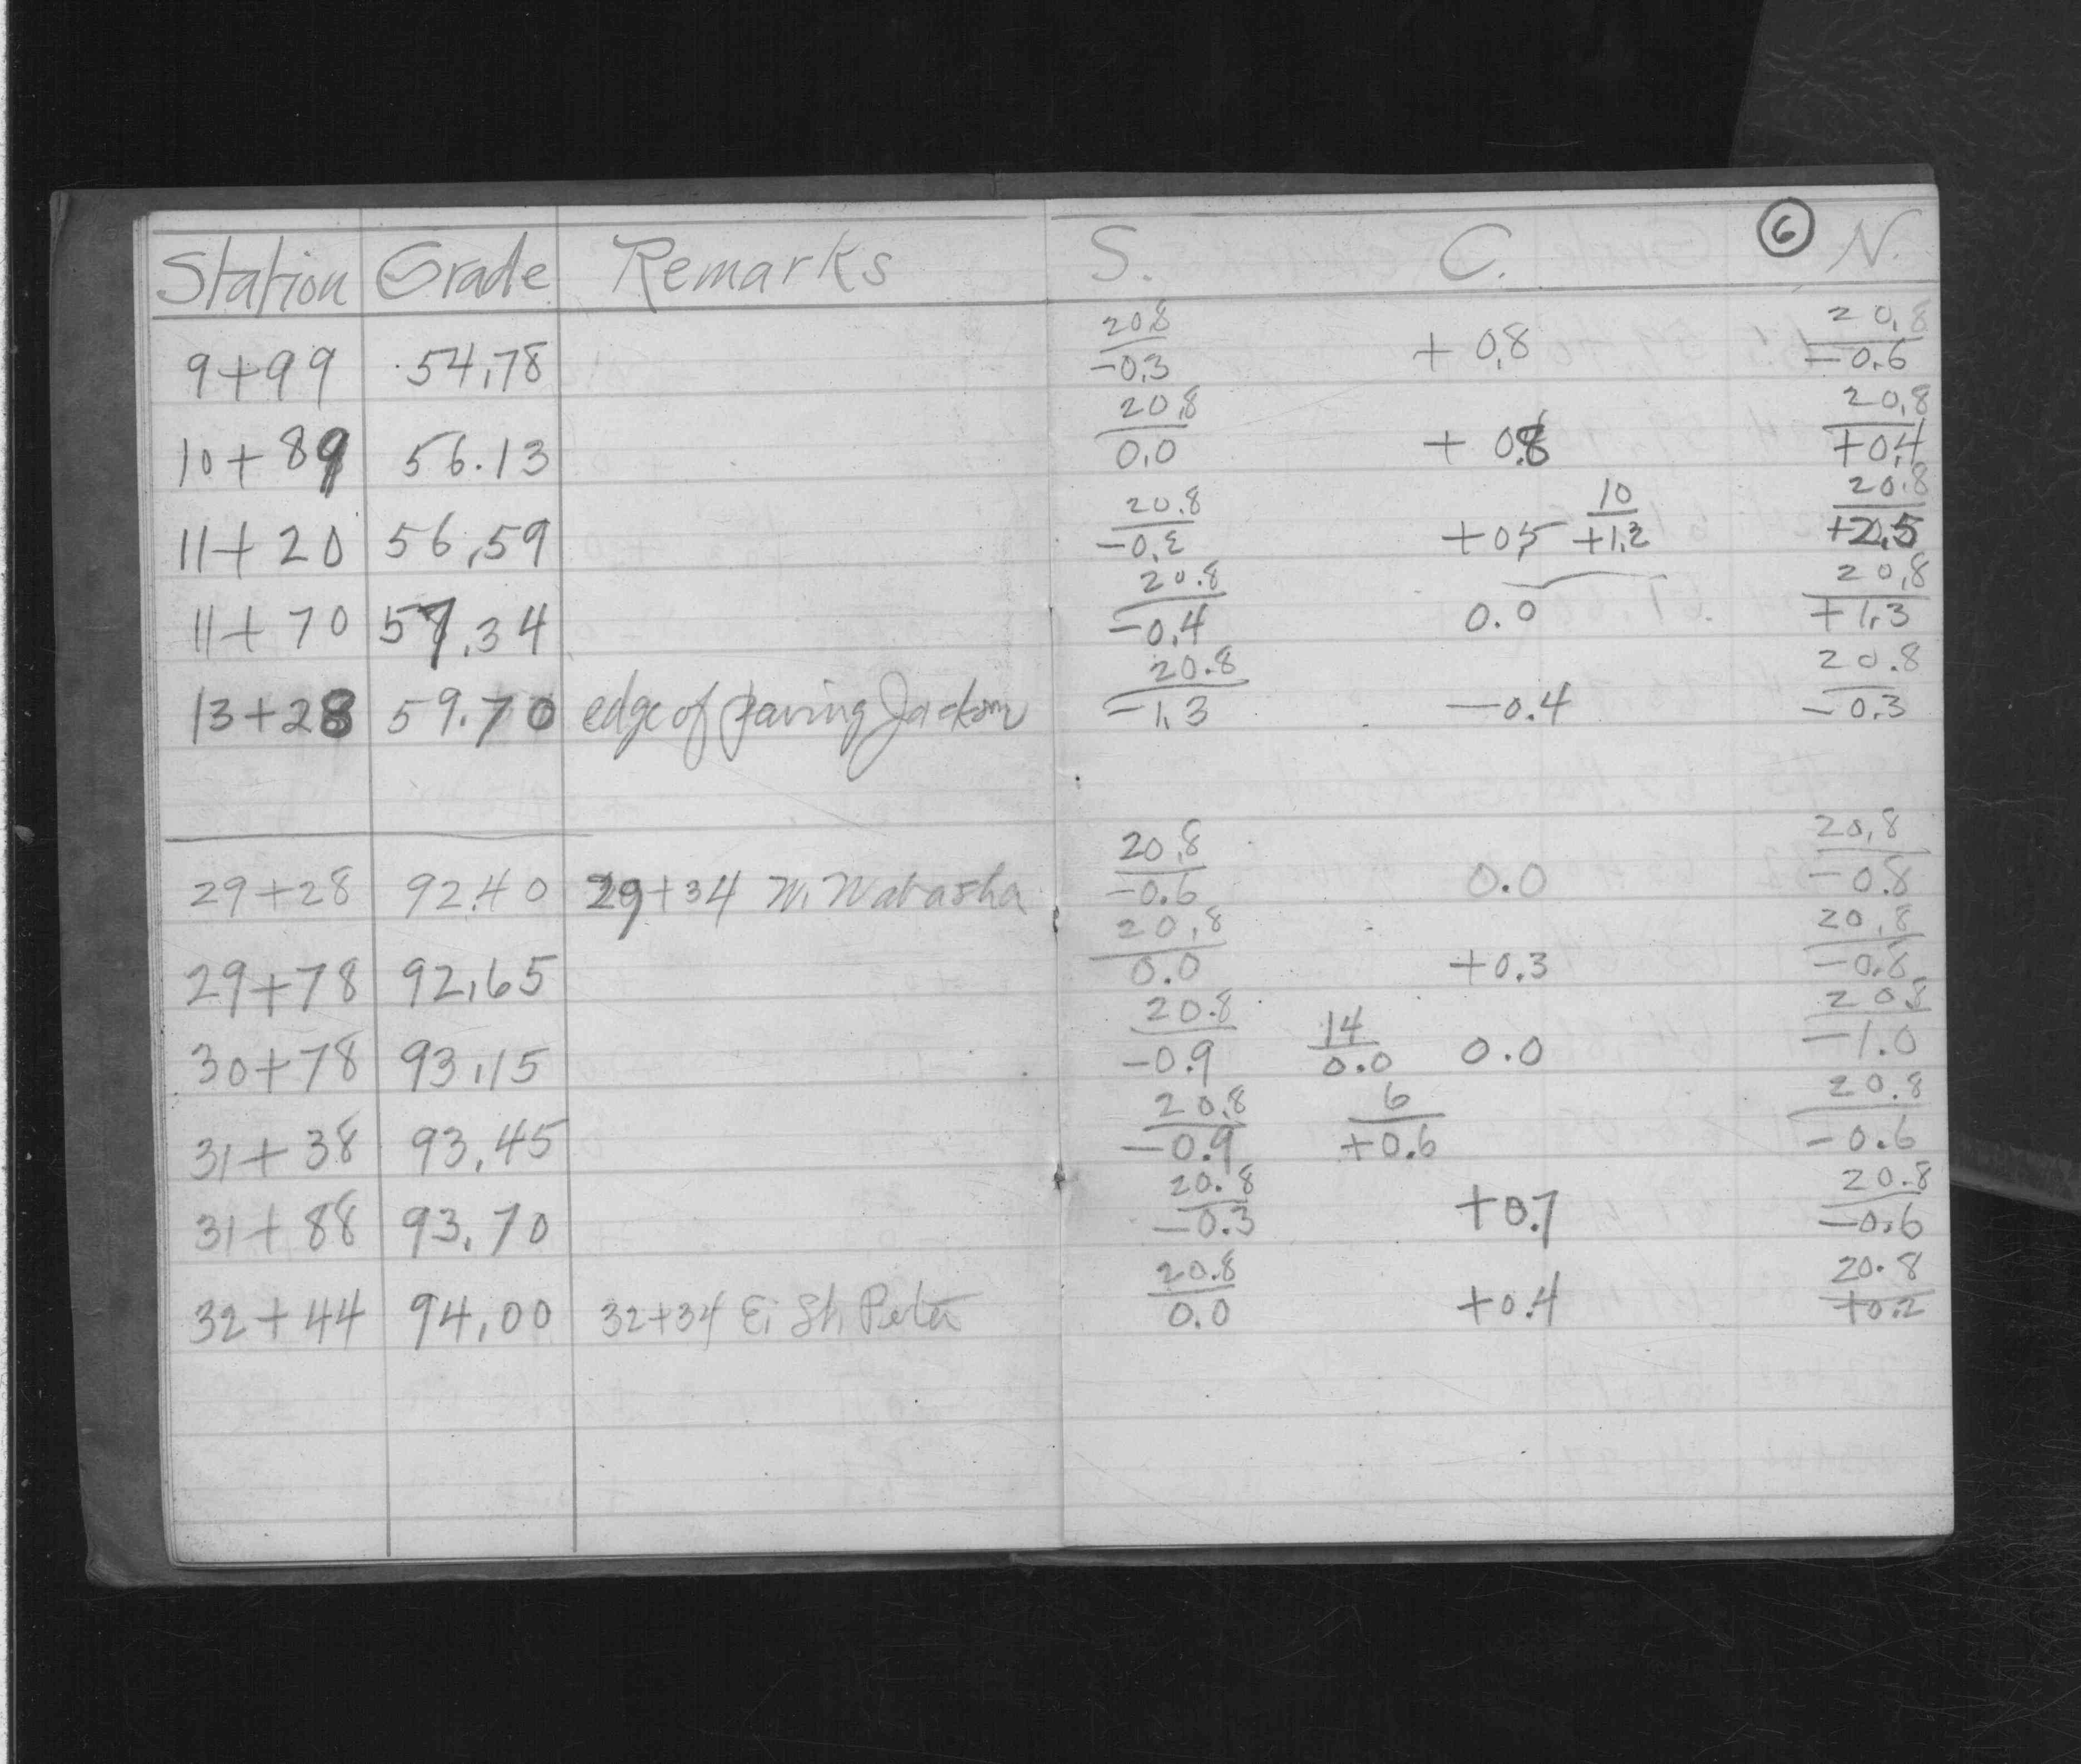 Station Grade Remarks S. C. 6 N.
20.8 20.8
9+99 54.78 -0.3 + 0.8 -0.6
20.8 20.8
10+89 56.13 0.0 + 0.8 +0.4
20.8 10 20.8
11+20 56.59 +0.5 +1.2 +2.5
20.8 20.8
11+70 57.34 -0.4 0.0 +1.3
20.8 20.8
13+28 59.70 edge of paving Jackson -1.3 -0.4 -0.3
20.8 20.8
29+28 92.40 29+34 W. Wabasha -0.6 0.0 -0.8
20.8 20.8
29+78 92.65 0.0 +0.3 -0.8
20.8 14 20.8
30+78 93.15 -0.9 0.0 0.0 -1.0
20.8 6 20.8
31+38 93.45 -0.9 +0.6 -0.6
20.8 20.8
31+88 93.70 -0.3 +0.7 -0.6
20.8 20.8
32+44 94.00 32+34 E. St. Peter 0.0 +0.4 +0.2